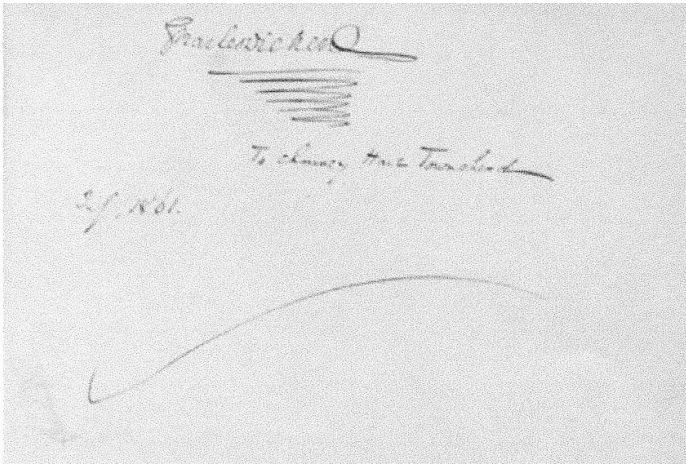 Charles Dickens
To Chauncy Hare Townshend
1861.